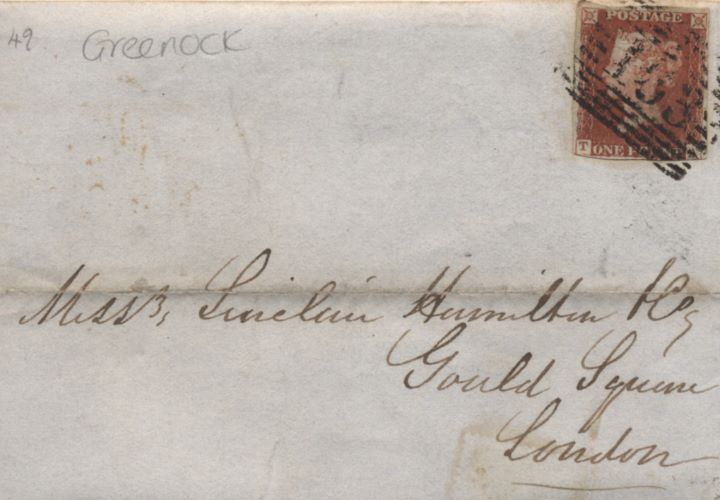 49 Greenock
POSTAGE
T ONE PENNY
Mess^rs, Sinclair Hamilton & Co
Gould Square
London